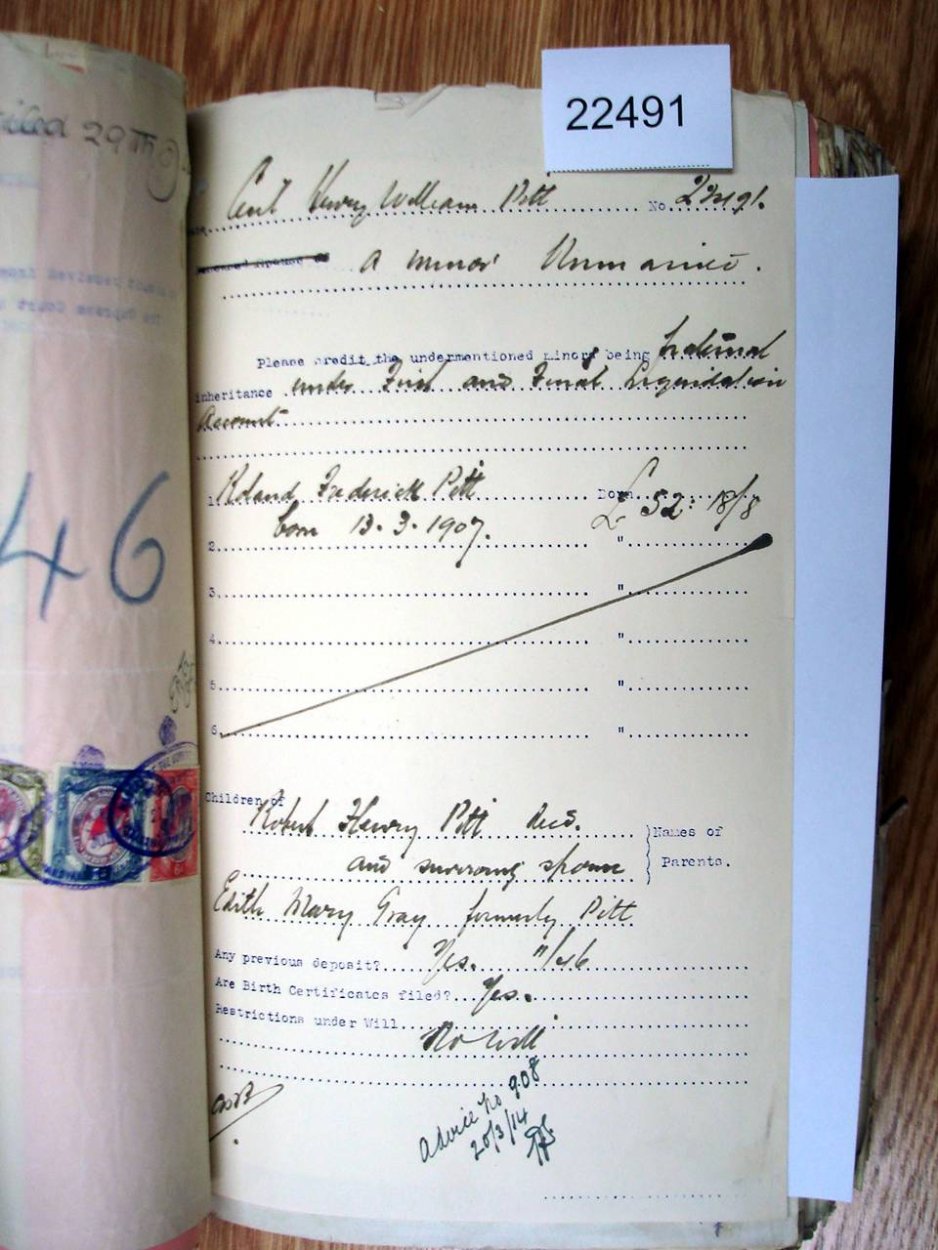 22491
filed 29
Cecil Henry William Pitt No. 22491.
a minor Unmarried.
Please credit the undermentioned minors being Fraternal
inheritance under First and Final Liquidation
Account
1 Roland Frederick Pitt Born £52: 18/8
born 13.3.1907.
2 "
3 "
4 "
5 "
6 "
46
Children of
Robert Henry Pitt decd. Names of
and surviving spouse Parents.
Edith Mary Gray formerly Pitt
Any previous deposit? Yes. 11/46
Are Birth Certificates filed? Yes.
Restrictions under Will
No Will
Advice No 908
20/3/14